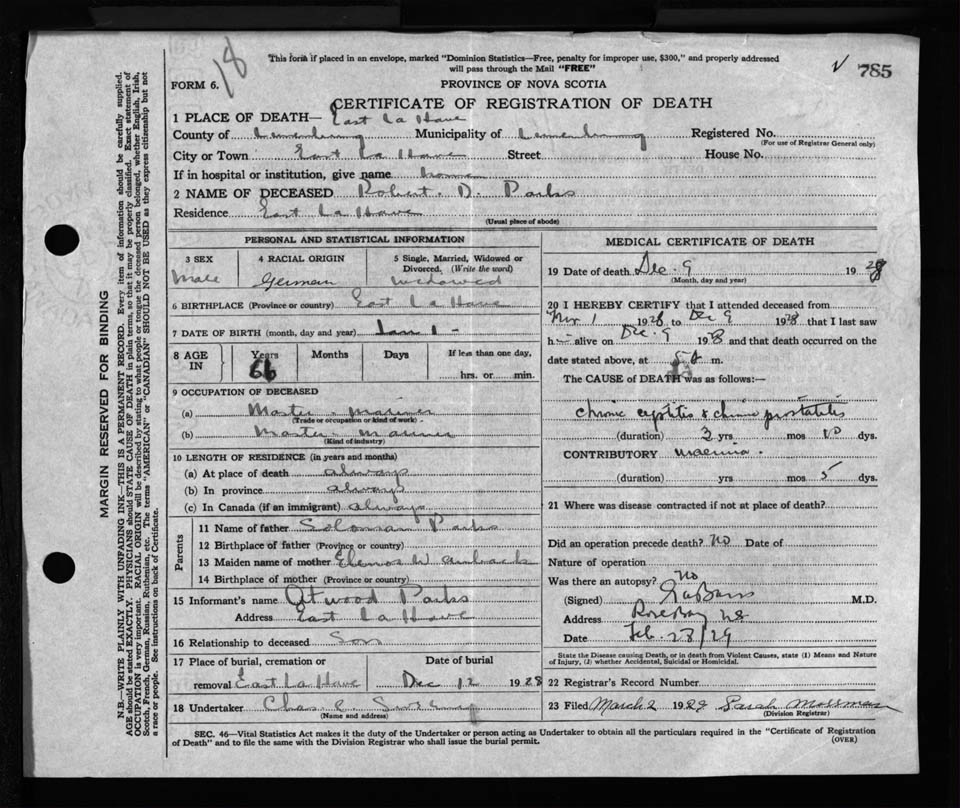 This form if placed in an envelope, marked "Dominion Statistics—Free, penalty for improper use, $300," and properly addressed
will pass through the Mail "FREE"
18
V 785
FORM 6.
PROVINCE OF NOVA SCOTIA
CERTIFICATE OF REGISTRATION OF DEATH
1 PLACE OF DEATH— East La Have
County of Lunenburg Municipality of Lunenburg Registered No.
(For use of Registrar General only)
City or Town East La Have Street House No.
If in hospital or institution, give name
2 NAME OF DECEASED Robert. D. Parks
Residence East La Have
(Usual place of abode)
PERSONAL AND STATISTICAL INFORMATION
3 SEX 4 RACIAL ORIGIN 5 Single, Married, Widowed or
Divorced. (Write the word)
Male German Widowed
6 BIRTHPLACE (Province or country) East La Have
7 DATE OF BIRTH (month, day and year) Jan 1 -
8 AGE IN Years Months Days If less than one day,
66 hrs. or min.
9 OCCUPATION OF DECEASED
(a) Master - mariner
(Trade or occupation or kind of work)
(b) Master - mariner
(Kind of industry)
10 LENGTH OF RESIDENCE (in years and months)
(a) At place of death always
(b) In province always
(c) In Canada (if an immigrant) always
Parents
11 Name of father Soloman Parks
12 Birthplace of father (Province or country)
13 Maiden name of mother
14 Birthplace of mother (Province or country)
15 Informant's name Atwood Parks
Address East La Have
16 Relationship to deceased Son
17 Place of burial, cremation or Date of burial
removal East La Have Dec 12 1928
18 Undertaker Chas. E.
(Name and address)
MEDICAL CERTIFICATE OF DEATH
19 Date of death Dec. 9 1928
(Month, day and year)
20 I HEREBY CERTIFY that I attended deceased from
Nov 1 1928 to Dec 9 1928 that I last saw
h alive on Dec. 9 1928 and that death occurred on the
date stated above, at m.
The CAUSE of DEATH was as follows:—
chronic cystitis & chronic prostatitis
(duration) yrs. mos dys.
CONTRIBUTORY
(duration) yrs mos 5 dys.
21 Where was disease contracted if not at place of death?
Did an operation precede death? No Date of
Nature of operation
Was there an autopsy? No
(Signed) M.D.
Address Rose Bay NS
Date Feb. 28/29
State the Disease causing Death, or in death from Violent Causes, state (1) Means and Nature
of Injury, (2) whether Accidental, Suicidal or Homicidal.
22 Registrar's Record Number
23 Filed March 2 1929 Sarah Mossman
(Division Registrar)
SEC. 46—Vital Statistics Act makes it the duty of the Undertaker or person acting as Undertaker to obtain all the particulars required in the "Certificate of Registration
of Death" and to file the same with the Division Registrar who shall issue the burial permit.
(OVER)
MARGIN RESERVED FOR BINDING
N.B.—WRITE PLAINLY WITH UNFADING INK—THIS IS A PERMANENT RECORD. Every item of information should be carefully supplied.
AGE should be stated EXACTLY. PHYSICIANS should STATE CAUSE OF DEATH in plain terms, so that it may be properly classified. Exact statement of
OCCUPATION is very important. RACIAL ORIGIN will be described by stating to what people or tongue the deceased person belonged, whether English, Irish,
Scotch, French, German, Russian, Ruthenian, etc. The terms "AMERICAN" or "CANADIAN" SHOULD NOT BE USED as they express citizenship but not
a race or people. See instructions on back of Certificate.